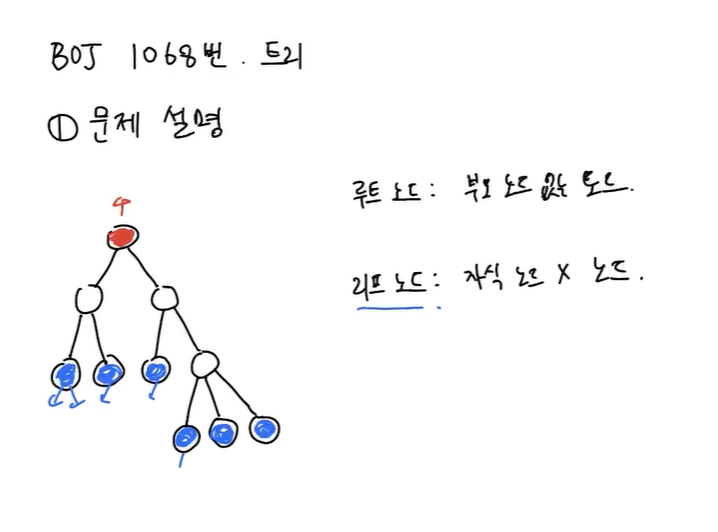 BOJ 1068번. 트리
① 문제 설명
루트 노드: 부모 노드 없는 노드.
리프 노드: 자식 노드 X 노드.